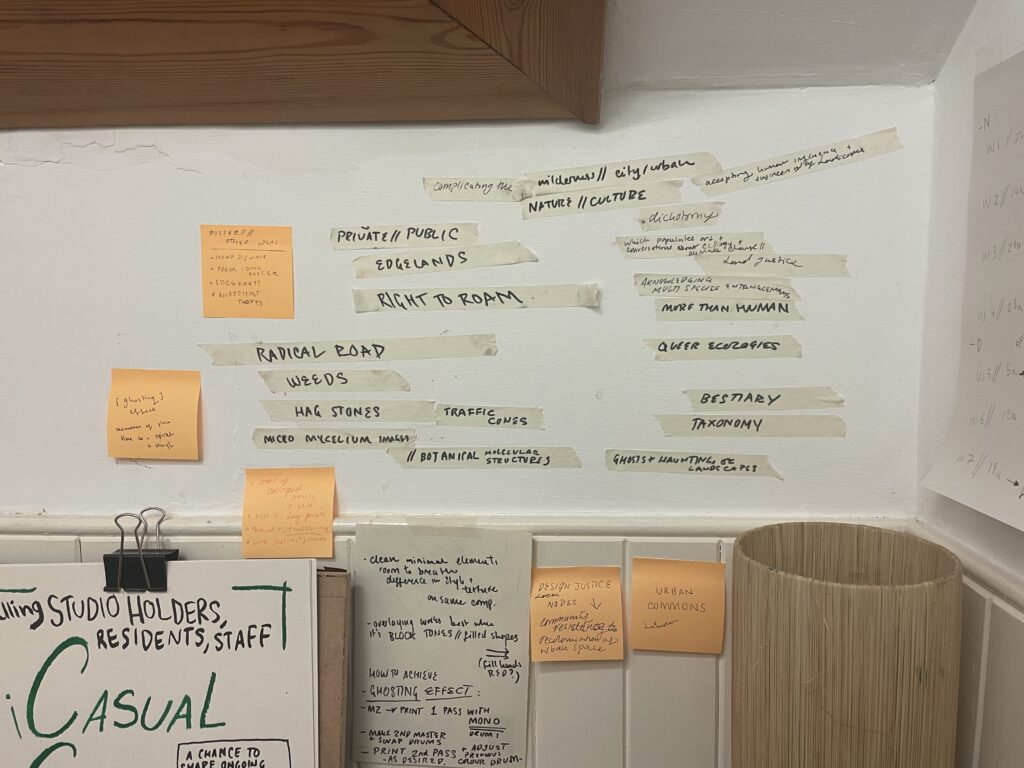 complicating the
wilderness// city/urban
accepting human influence +
engineering landscapes
NATURE // CULTURE
dichotomy
PRIVATE // PUBLIC
EDGELANDS
RIGHT TO ROAM
which populates art +
conversations about ecology +
climate change //
Land Justice
AKNOWLEDGING
MULTI SPECIES ENTANGLEMENTS
MORE THAN HUMAN
QUEER ECOLOGIES
BESTIARY
TAXONOMY
GHOSTS + HAUNTING OF
LANDSCAPES
RADICAL ROAD
WEEDS
HAG STONES
TRAFFIC
CONES
MICRO MYCELIUM IMAGES
// BOTANICAL MOLECULAR
STRUCTURES
POSTERS//
OTHER
POEM LONG
POSTER
STICKERS??
ANARCHIST
[ghosting]
effect
memories of place
+ lino
· clean minimal elements
room to breath
difference in style +
texture
on same comp.
- overlaying works best when
it's BLOCK TONES // filled shapes
(fill hands
RED?)
HOW TO ACHIEVE
- GHOSTING EFFECT:
- MZ → PRINT 1 PASS WITH
MONO
DRUM 1
- MAKE 2ND MASTER
+ SWAP DRUMS
- PRINT 2nd PASS + ADJUST
- AS DESIRED. COLOUR DRUM-
DESIGN JUSTICE
NODES
community
resistance to
of
urban space
URBAN
COMMONS
lling STUDIO HOLDERS,
RESIDENTS, STAFF
CASUAL
A CHANCE TO
SHARE ONGOING
-N
W1 //
W2 // 14
W3 // 21
W4 // 28
-D
W5 // 5
W7 // 19